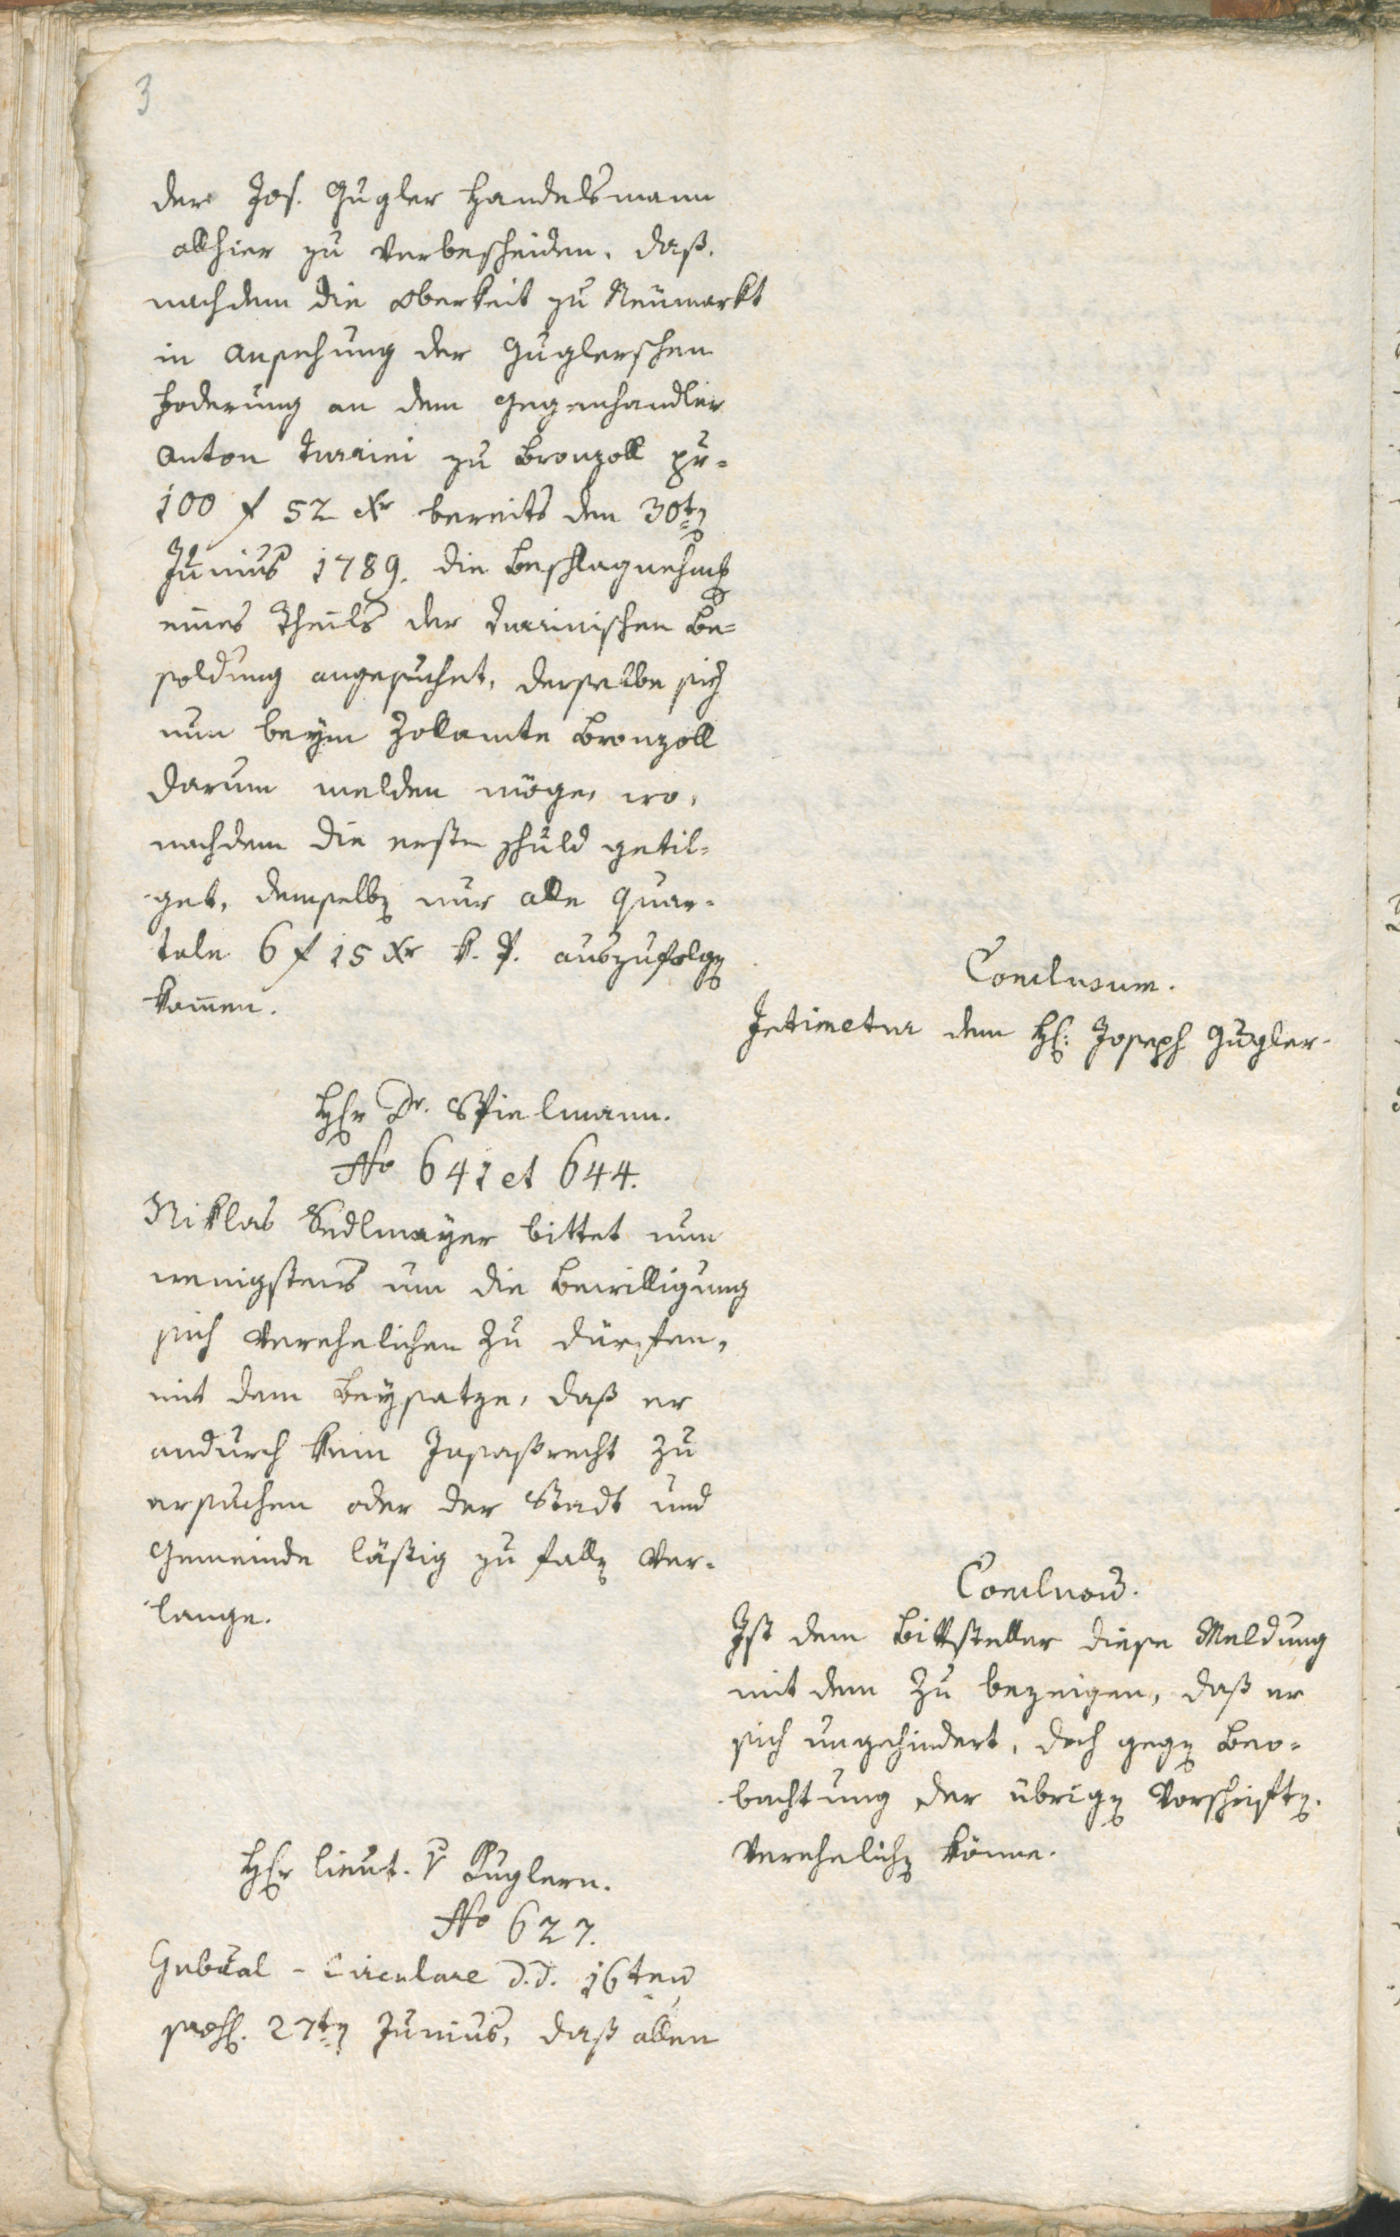 3
der Jos. Gugler Handelsmann
allhier zu verbescheiden, daß,
nachdem die Oberkeit zu Neumarkt
in Ansehung der Guglerschen
Foderung an dem Gegenhandler
Anton Turrini zu Bronzoll pr=
100 f 52 Xr bereits den 30ten
Junius 1789. die Beschlagnehmg
eines Theils der Turrinischen Be=
soldung angesuchet, derselbe sich
nun beym Zollamte Bronzoll
darum melden möge, wo,
nachdem die erste Schuld getil=
get, demselben nur alle Quar=
tale 6 f 15 Xr k. P. auszufolgen
kom̄en.
Conclusum.
Intimetur dem H: Joseph Gugler.
Hr Dr. Spielmann.
No 641 et 644.
Niklas Sedlmayer bittet nun
wenigstens um die Bewilligung
sich verehelichen zu dürfen,
mit dem Beysatze, daß er
andurch kein Insaßrecht zu
ersuchen oder der Stadt und
Gemeinde läßtig zu fallen ver=
lange.
Conclusum.
Ist dem Bittsteller diese Meldung
mit dem zu bezeigen, daß er
sich ungehindert, doch gegen Beo=
bachtung der übrigen Vorschriften.
verehelichen könne.
Hr Lieut. v Kuglern.
No 627.
Gubĕal - Circulare d.d. 16ten
praes. 27ten Junius, daß allen